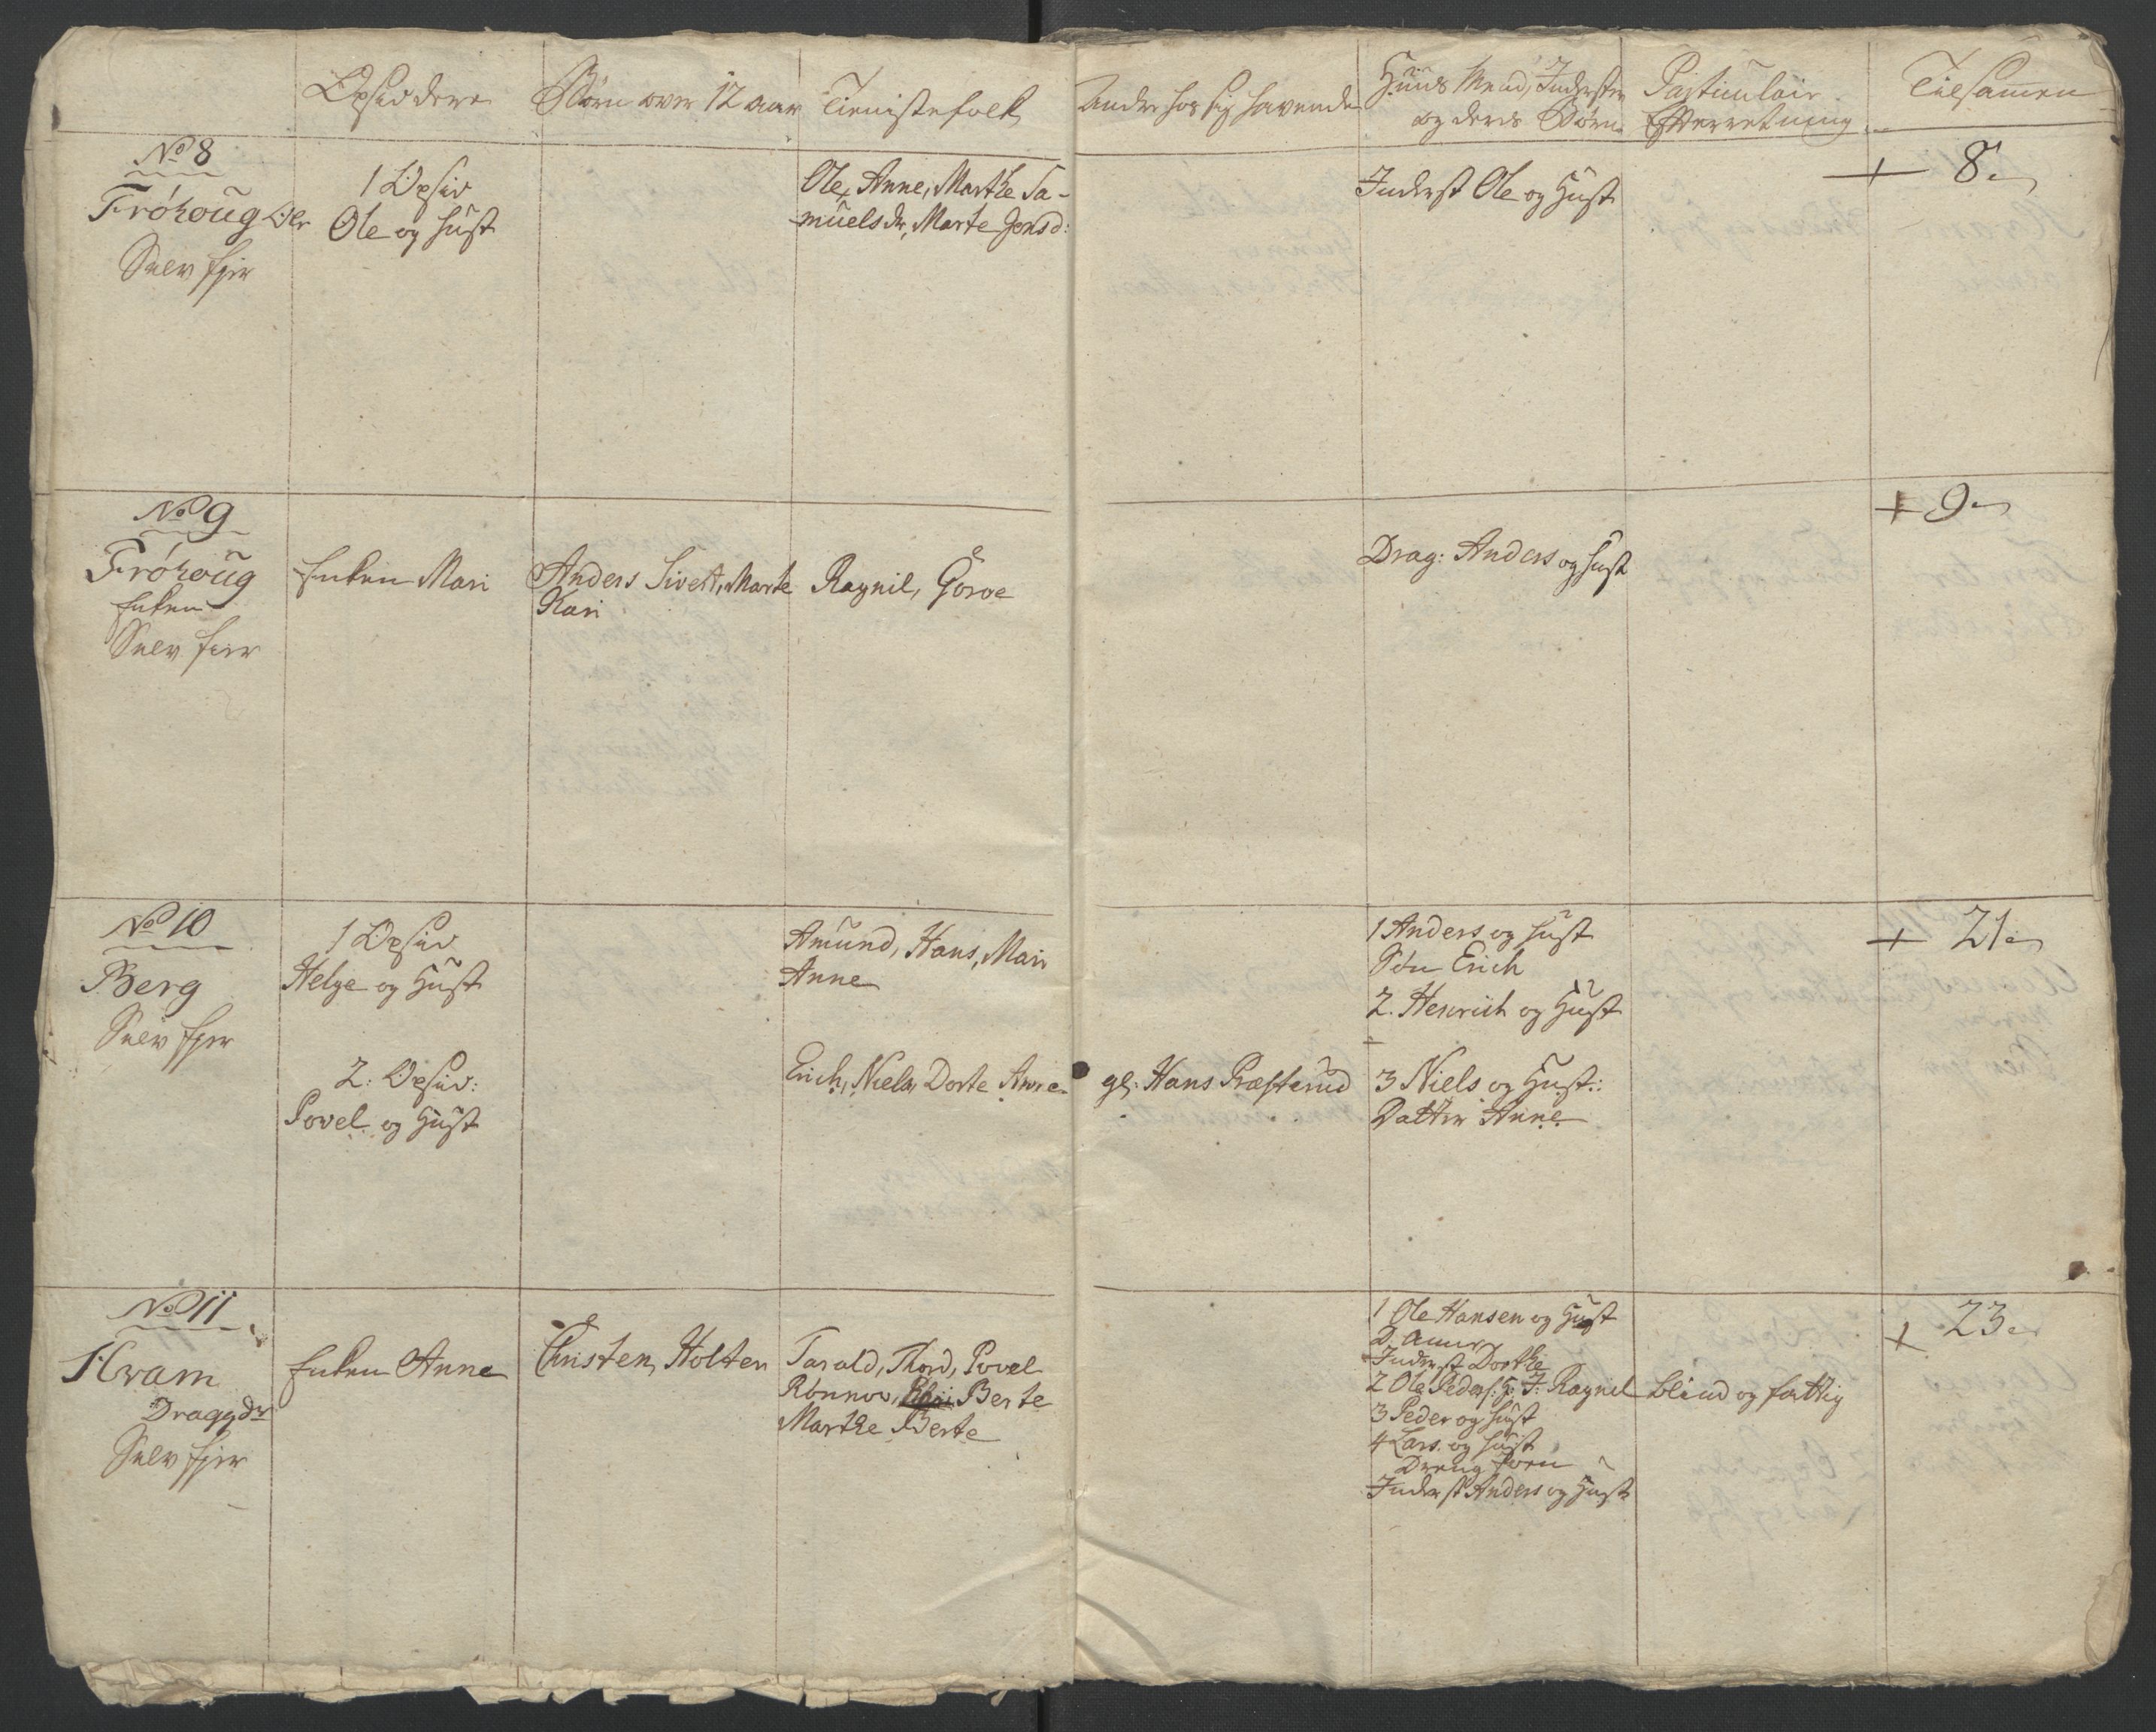 Opsiddere
Børn over 12 aar
Tienistefolk
Andre hos sig havende
Huus Mend, Inderster
og deres Børn
Particulair
Efterretning
Tilsamen
No 8
Fróhoŭg
Selv Ejer
1 Opsid
Ole og Hust
Ole, Anne, Marthe Sa-
muelsdr, Marte Jonsd:
Inderst Ole og Hust
+ 8
No 9
Fróhoŭg
Enken
Selv Eier
Enken Mari
Anders Sivert, Marte
Kari
Ragnil, Goroe
Drag: Anders og Hust
+ 9
No 10
Berg
Selv Ejer
1 Opsid
Helge og Hust
2: Opsid:
Povel og Hust
Amund, Hans, Mari
Anne
Erich, Niels, Dorte Anne
gl: Hans Præsterud
1 Anders og Hust
Søn Erich
2. Henrich og Hust
3 Niels og Hust:
Datter Anne
+ 21
No 11
Hvam
Dragg
Selv Ejer
Enken Anne
Christen, Holter
Tarald, Thord, Povel
Rønnov, Berte
Marthe Berte
1 Ole Hansen og Hust
D. Anne
Inderst Dorthe
2 Ole Peders: H: I: Ragnil
3 Peder og Hust
4 Lars og Hust
Dreng
Inderst Anders og Hust
blind og fattig
+ 23